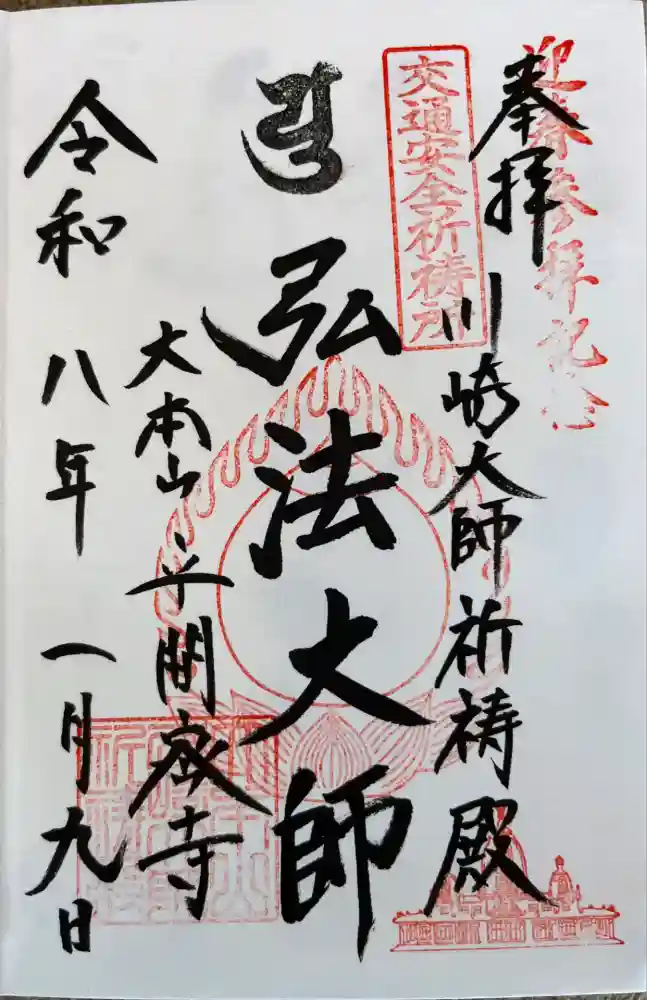 迎春参拝記念
奉拝
川崎大師祈祷殿
交通安全祈祷所
弘法大師
大本山平間寺
令和八年一月九日